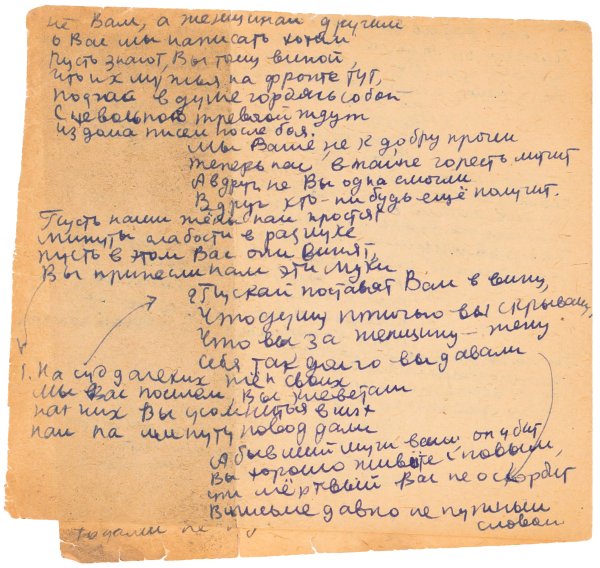 не Вам, а женщинам другим
о Вас мы написать хотим
Пусть знают, Вы тому виной,
что их мужья на фронте тут,
подчас в душе гордясь собой
С невольною тревгой ждут
из дома писем после боя.
Мы Ваше не к добру прочли
теперь нас в тайне горесть мучит
А вдруг не Вы одна смогли
Вдруг кто-нибудь ещё получит.
Пусть наши жёны нам простят
минуты слабости в разлуке
пусть в этом Вас они винят,
Вы принесли нам эти муки
2 Пускай поставят Вам в вину,
Что душу птичью вы скрывали,
Что вы за женщину - жену
себя так долго выдавали
1. На суд далеких жён своих
Мы Вас пошлем, Вы клеветали
на них Вы усомниться в них
нам на минуту повод дали
А бывший муж ваш он убит
Вы хорошо живёте с новым,
уж мёртвый Вас не оскорбит
В письме давно не нужным
словом